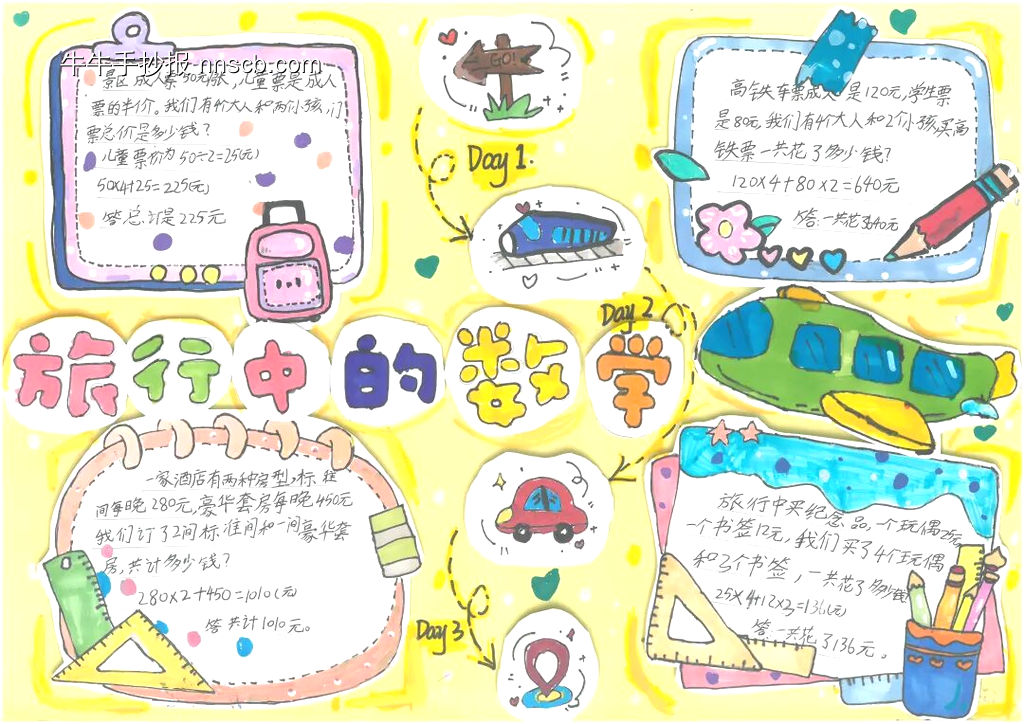 牛牛手抄报 nnscb.com
景区成人票50元/张,儿童票是成人
票的半价。我们有4个大人和两个小孩,门
票总价是多少钱?
儿童票价为 50÷2=25(元)
50×4+25=225(元)
答:总计是225元
GO!
Day 1.
高铁车票成人 是120元,学生票
是80元,我们有4个大人和2个小孩买高
铁票一共花了多少钱?
120×4+80×2=640元
答:一共花了640元
Day 2
旅行中的数学
一家酒店有两种房型,标准
间每晚280元,豪华套房每晚450元
我们订了2间标准间和一间豪华套
房,共计多少钱?
280×2+450=1010(元
答 共计1010元。
Day 3
旅行中买纪念品,一个玩偶25元
一个书签12元,我们买了4个玩偶
和3个书签,一共花了多少钱?
25×4+12×3=136(元
答:一共花了136元。